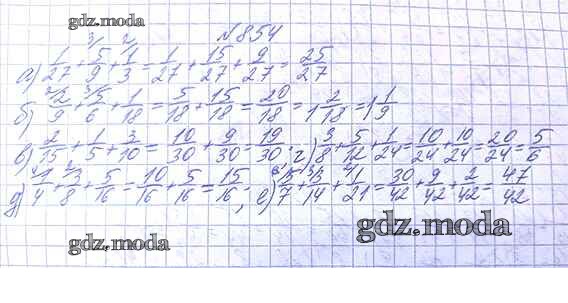 gdz.moda
№854
а) 1/27 + 5/9 + 1/3 = 1/27 + 15/27 + 9/27 = 25/27
б) 2/9 + 5/6 + 1/18 = 5/18 + 15/18 = 20/18 = 1 2/18 = 1 1/9
в) 2/15 + 1/5 + 3/10 = 10/30 + 9/30 = 19/30. г) 3/8 + 5/12 + 1/24 = 10/24 + 10/24 = 20/24 = 5/6
д) 1/4 + 3/8 + 5/16 = 10/16 + 5/16 = 15/16. е) 5/7 + 3/14 + 1/21 = 30/42 + 9/42 + 2/42 = 47/42
gdz.moda
gdz.moda